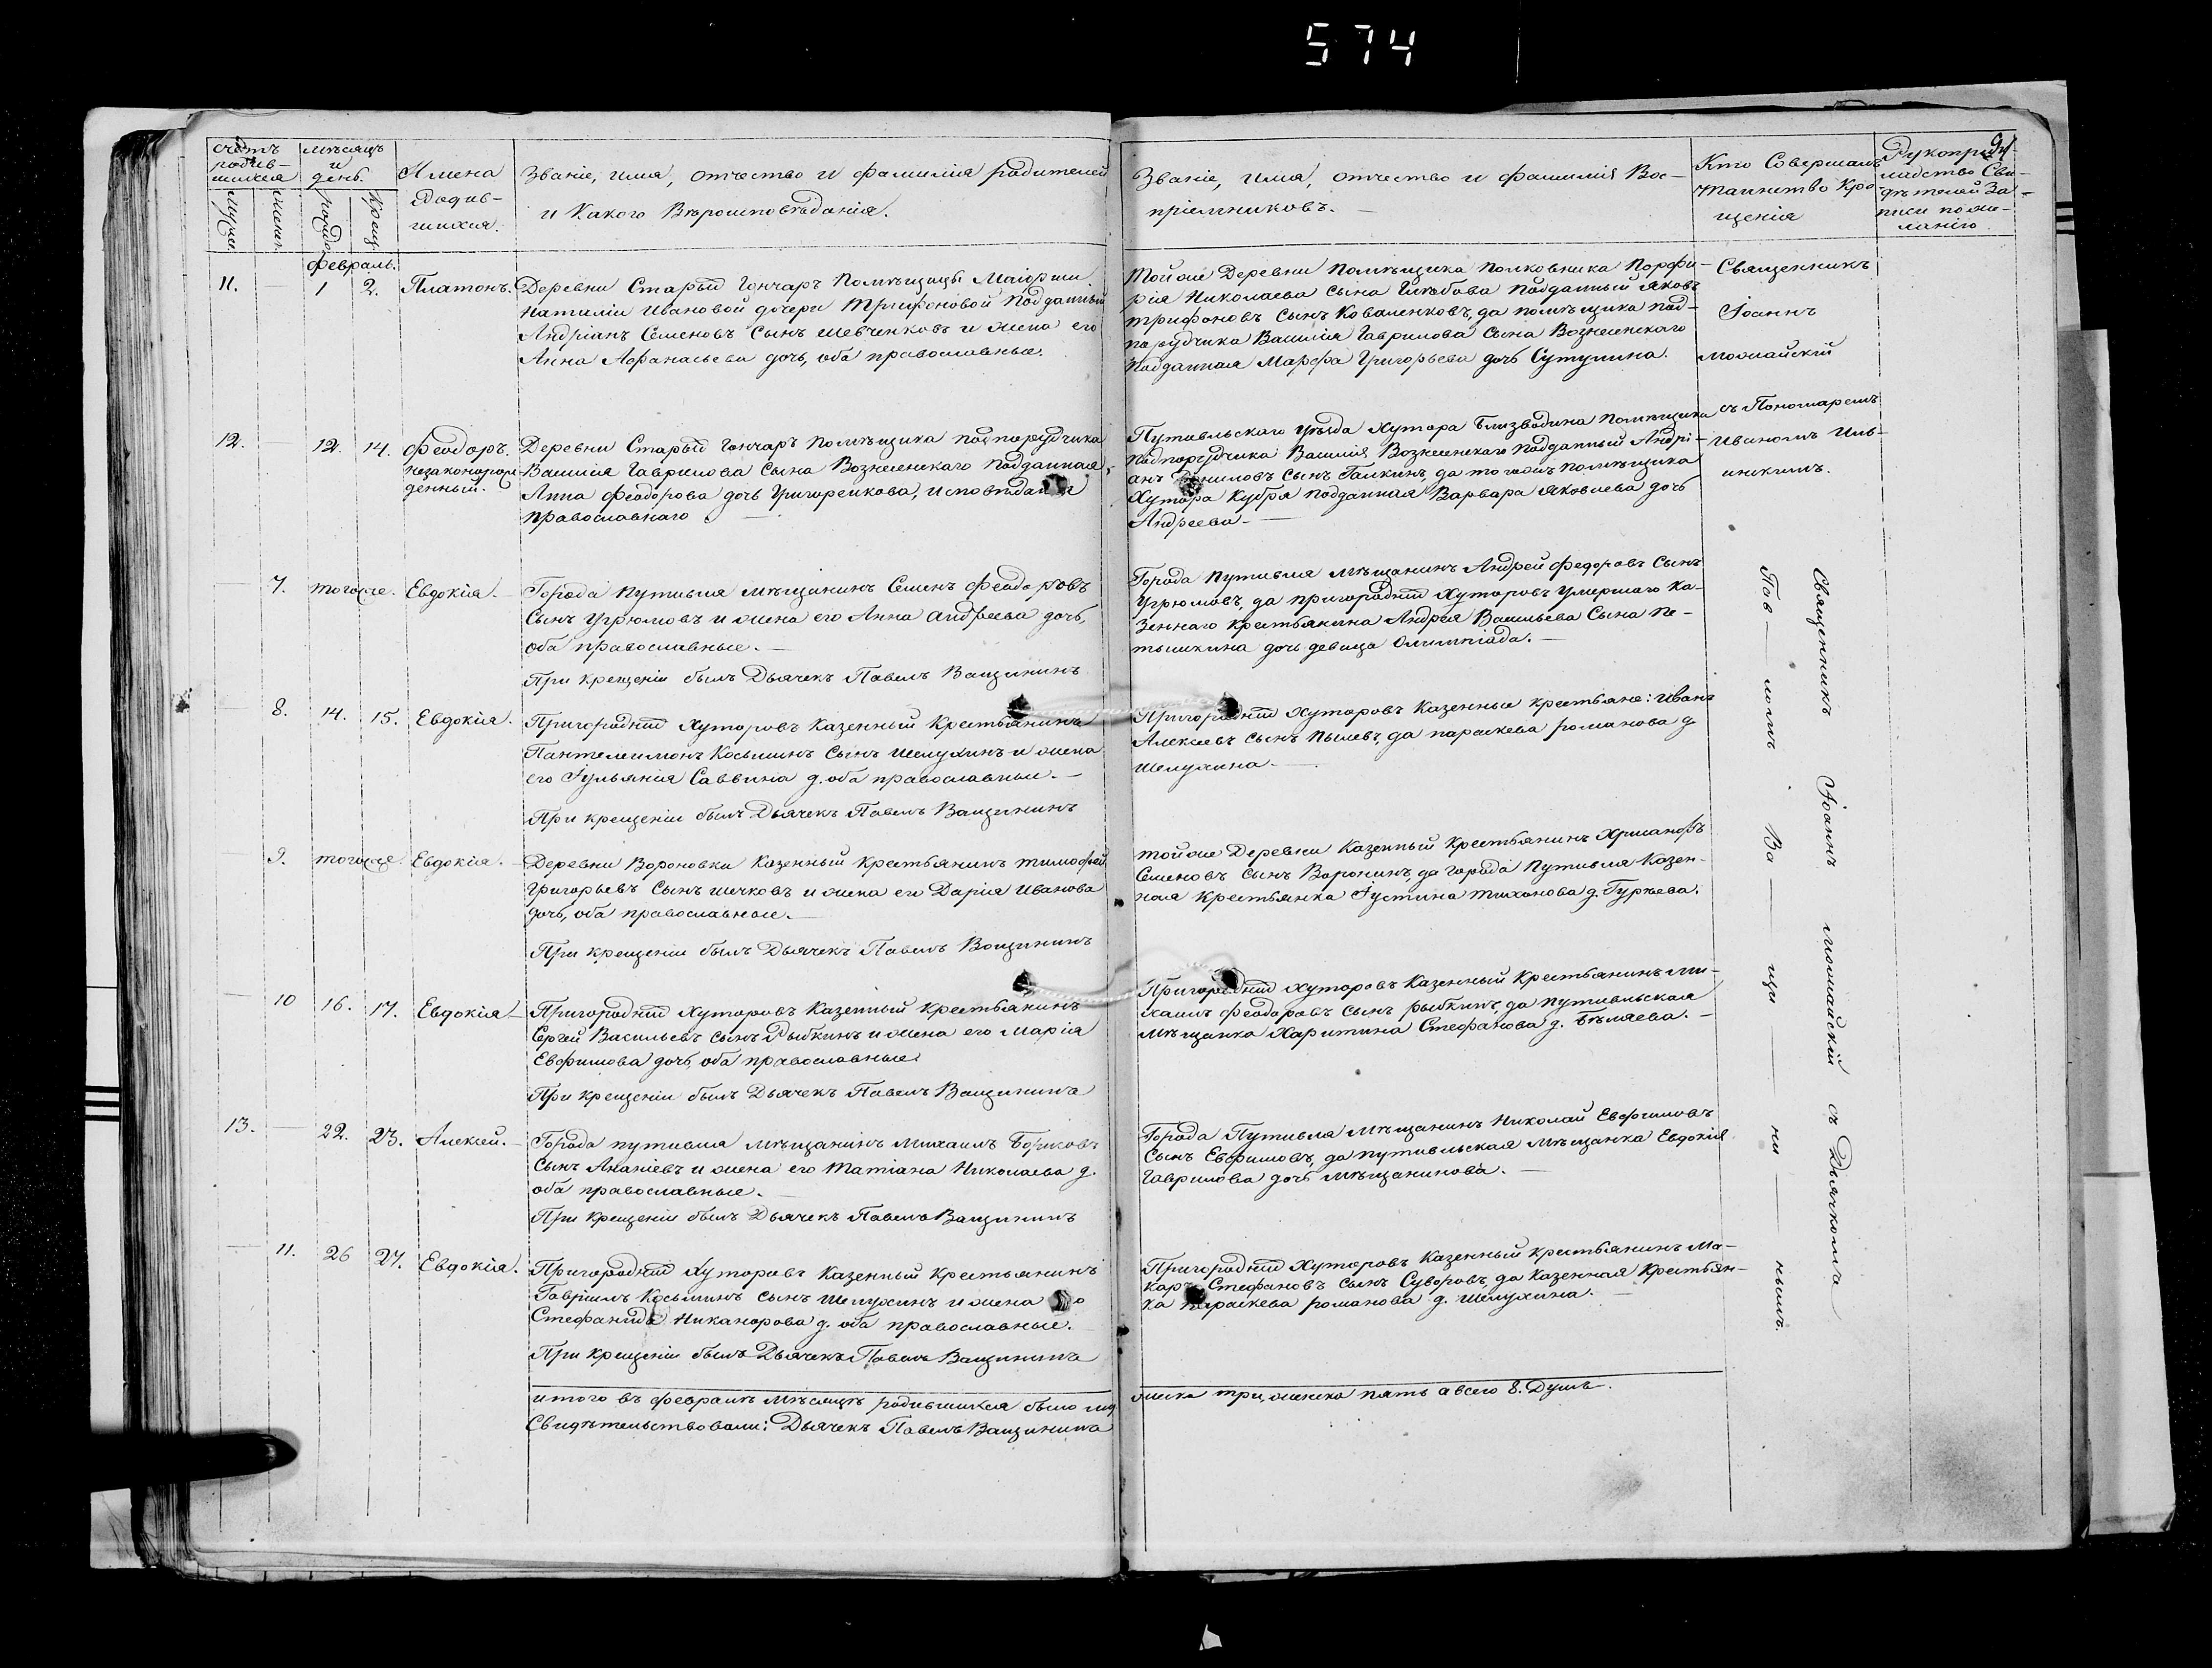 574
Счетъ родив-
шихся
мѣсяцъ
и
день.
Имена
Родив-
шихся.
Званіе, имя, отчество и фамилія родителей
и Какого Вѣроисповѣданія.
Званіе, имя, отчество и фамилія Вос-
пріемниковъ.
Кто Совершалъ
таинство Кре-
щенія
Рукоприк-
ладство Сви-
дѣтелей За-
писи по же-
ланію
Февраль.
11. 1 2. Платонъ.
Деревни Старый Гончаръ Помѣщицы Маіорши
Наталіи Ивановой дочери Трифоновой Подданный
Андріанъ Семеновъ Сынъ Шевченковъ и жена его
Анна Афанасьева дочь, оба православные.
Той же Деревни Помѣщика Полковника Порфи-
рія Николаева Сына Подданный Яковъ
Трифоновъ Сынъ Коваленковъ, да помѣщика под-
порудчика Василія Гаврилова Сына Вознесенскаго
Подданная Марфа Григорьева дочь Сутулина.
Священникъ
Іоаннъ
Можайскій
съ Пономаремъ
Иваномъ Иль-
инскимъ.
12. 12. 14. Феодоръ.
незаконорож-
денный.
Деревни Старый Гончаръ Помѣщика подпорудчика
Василія Гаврилова Сына Вознесенскаго подданная,
Анна Феодорова дочь Григоренкова, исповѣданія
православнаго
Путивльскаго уѣзда Хутора Близводина помѣщика
Подпорудчика Василія Вознесенскаго подданный Андрі-
анъ Даниловъ Сынъ Галкинъ, да тогожъ помѣщика
Хутора Кубря подданная Варвара Яковлева дочь
Андреева.
7. тогоже. Евдокія.
Города Путивля мѣщанинъ Семенъ Феодоровъ
Сынъ Угрюмовъ и жена его Анна Андреева дочь,
оба православные.
При крещеніи былъ Дьячекъ Павелъ Ващининъ
Города Путивля мѣщанинъ Андрей Федоровъ Сынъ
Угрюмовъ, да пригороднiй Хуторовъ умершаго ка-
зеннаго крестьянина Андрея Васильева Сына Пе-
тышкина дочь девица Олимпіада.
8. 14. 15. Евдокія.
Пригороднiй Хуторовъ Казенный Крестьянинъ
Пантелимонъ Косьминъ Сынъ Шелухинъ и жена
его Іульянія Саввина д. оба православные.
При крещеніи былъ Дьячекъ Павелъ Ващининъ
Пригороднiй Хуторовъ Казенные крестьяне: Иванъ
Алексеевъ Сынъ Пылевъ, да параскева романова д
Шелухина.
9. тогоже. Евдокія.
Деревни Вороновки Казенный Крестьянинъ Тимофей
Григорьевъ Сынъ Шечковъ и жена его Дарія Иванова
дочь, оба православные.
При крещеніи былъ Дьячекъ Павелъ Ващининъ
той же Деревни Казенный крестьянинъ Хрисанфъ
Семеновъ Сынъ Воронинъ, да города Путивля Казен-
ная Крестьянка Іустина Тихонова д. Гурьева.
10 16. 17. Евдокія
Пригороднiй Хуторовъ Казенный Крестьянинъ
Сергей Васильевъ Сынъ Рыбкинъ и жена его Марія
Евфимова дочь, оба православные.
При крещеніи былъ Дьячекъ Павелъ Ващининъ
Пригороднiй Хуторовъ Казенный крестьянинъ Ми-
хаилъ Феодоровъ Сынъ рыбкинъ, да Путивльская
мѣщанка Харитина Стефанова д. Бѣляева.
13. 22. 23. Алексей.
Города путивля мѣщанинъ Михаилъ Борисовъ
Сынъ Ананіевъ и жена его Татіана Николаева д.
оба православные.
При крещеніи былъ Дьячекъ Павелъ Ващининъ
Города Путивля мѣщанинъ Николай Евфимовъ
Сынъ Евфимовъ, да путивльская мѣщанка Евдокія
Гаврилова дочь мѣщанинова.
11. 26 27. Евдокія.
Пригороднiй Хуторовъ Казенный Крестьянинъ
Гавріилъ Косьминъ Сынъ Шелухинъ и жена его
Стефанида Никанорова д. оба православные.
При крещеніи былъ Дьячекъ Павелъ Ващининъ
Пригороднiй Хуторовъ Казенный крестьянинъ Ма-
каръ Стефановъ Сынъ Суворовъ, да Казенная Крестьян-
ка параскева романова д. Шелухина.
Священникъ Іоаннъ Можайскій съ Дьячкомъ
Павломъ Ващининымъ.
итого въ Февралѣ мѣсяцѣ родившихся было му
жеска три, женска пять а всего 8. Душъ.
Свидѣтельствовали: Дьячекъ Павелъ Ващининъ